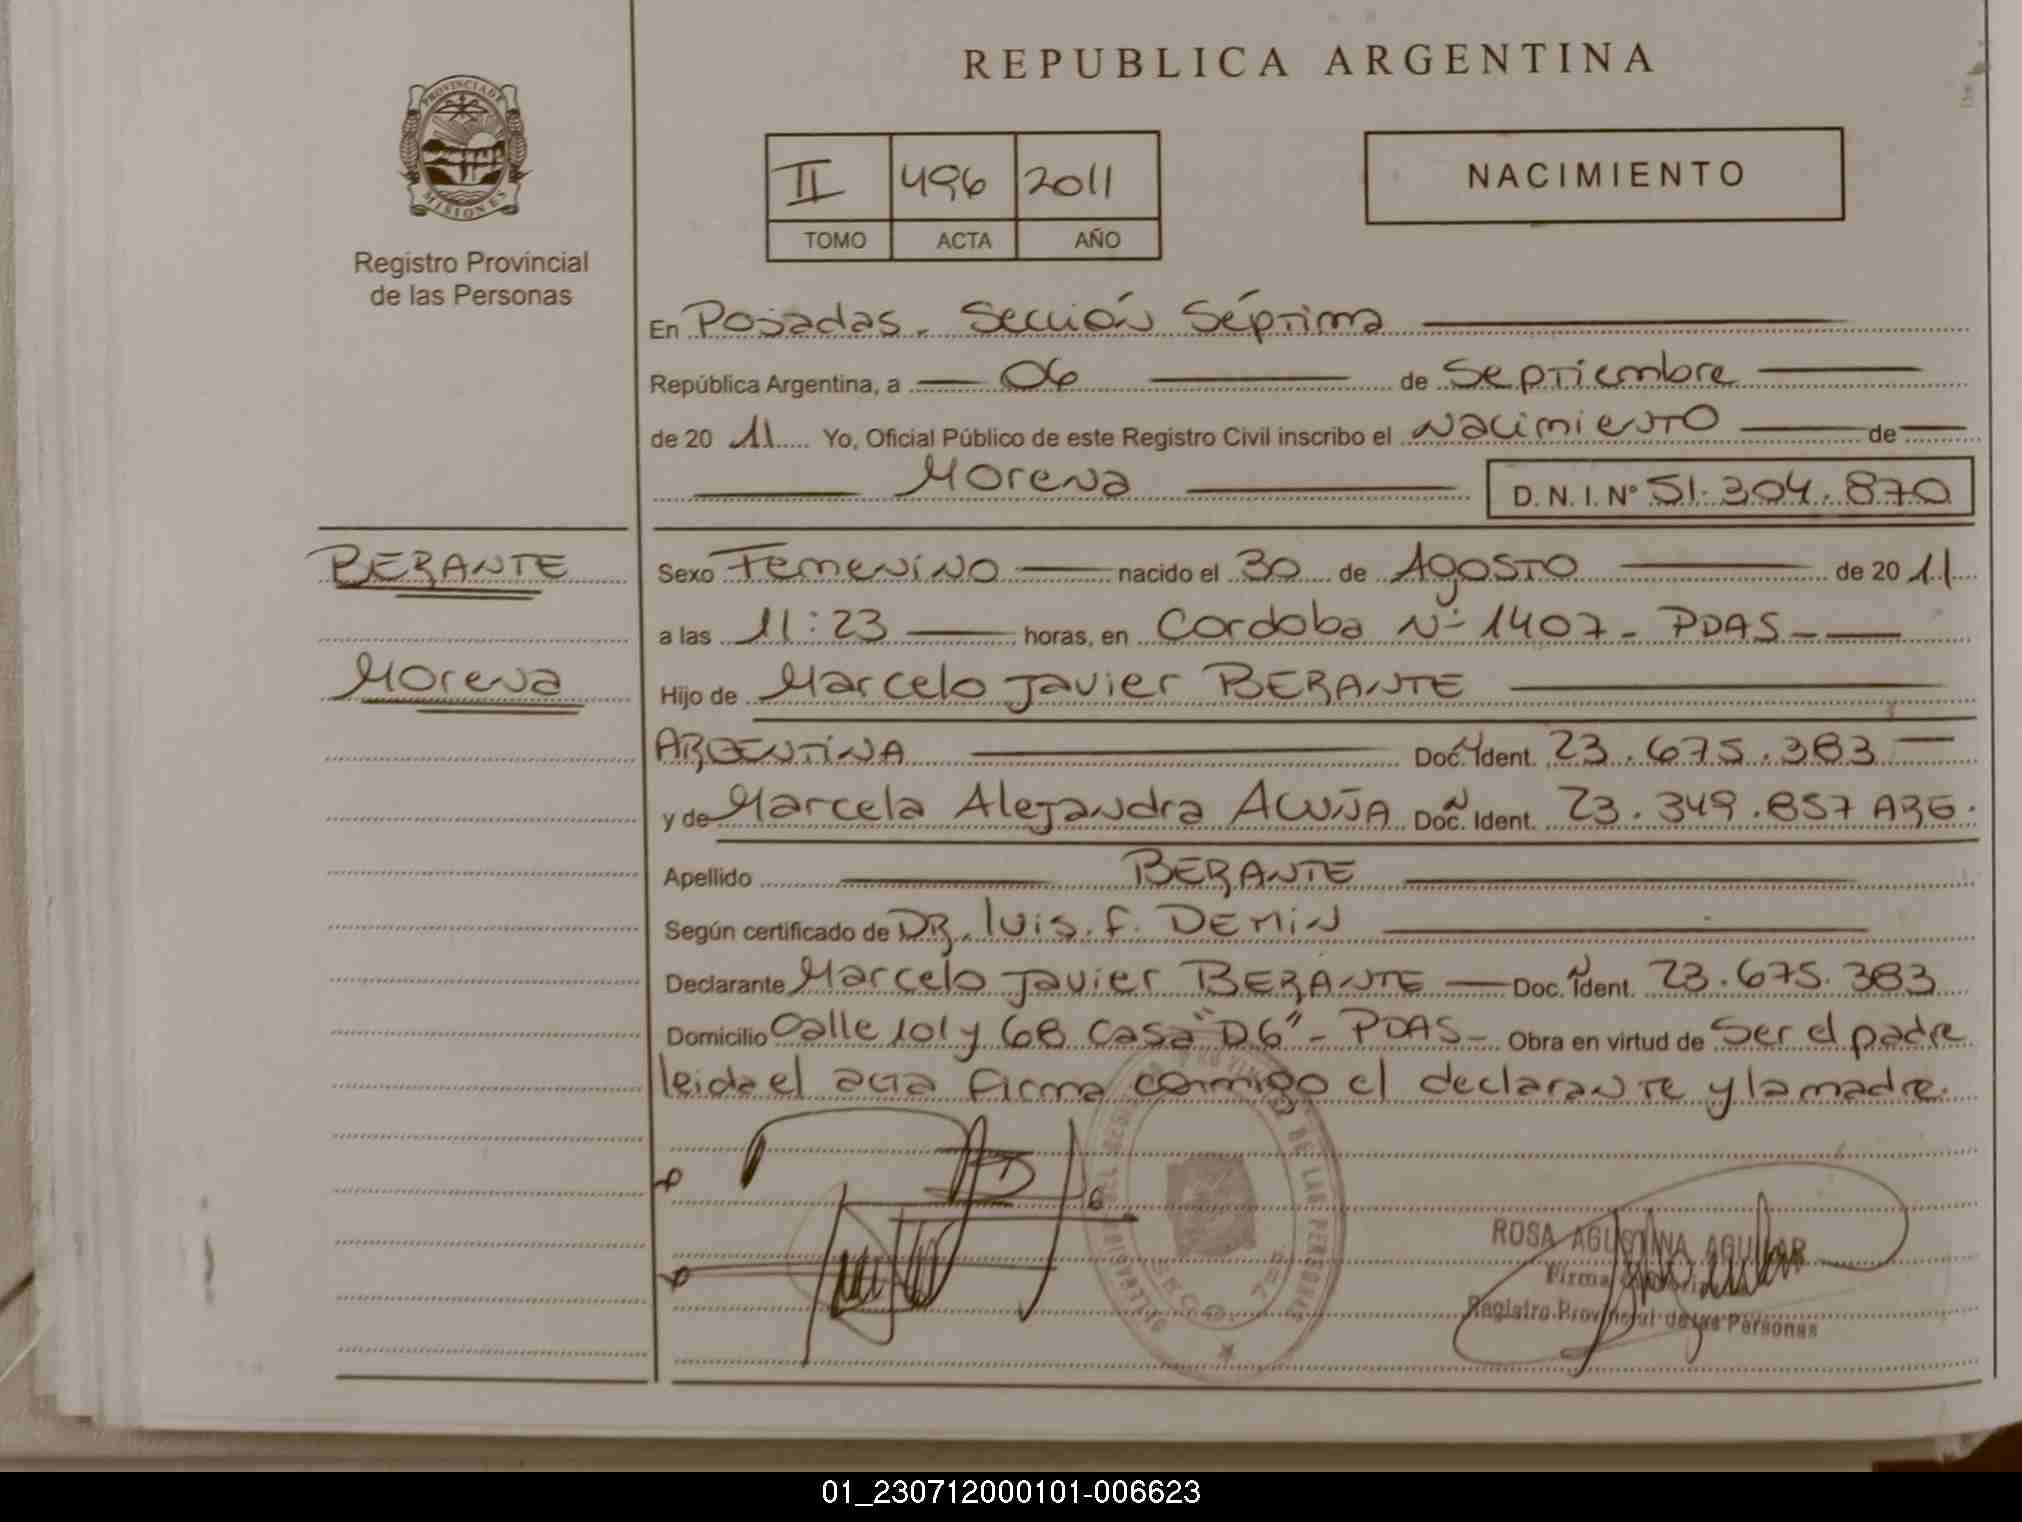 REPUBLICA ARGENTINA
PROVINCIA DE
MISIONES
Registro Provincial
de las Personas
II 496 2011
TOMO ACTA AÑO
NACIMIENTO
En Posadas. Sección Séptima
República Argentina, a 06 de Septiembre
de 20 11 Yo, Oficial Público de este Registro Civil inscribo el Nacimiento de
Morena D. N. I. Nº 51.304.870
BERANTE
Morena
Sexo Femenino nacido el 30 de Agosto de 20 11
a las 11:23 horas, en Cordoba Nº 1407 - PDAS -
Hijo de Marcelo Javier BERANTE
ARGENTINA Doc. Ident. 23.675.383
y de Marcela Alejandra ACUÑA Doc. Ident. 23.349.857 ARG.
Apellido BERANTE
Según certificado de DR. Luis. F. DEMIN
Declarante Marcelo Javier BERANTE Doc. Ident. 23.675.383
Domicilio Calle 101 y 68 Casa "D6" - PDAS - Obra en virtud de Ser el padre
leida el acta firma conmigo el declarante y la madre.
ROSA AGUSTINA AGUILAR
Firma
Registro Provincial de las Personas
01_230712000101-006623